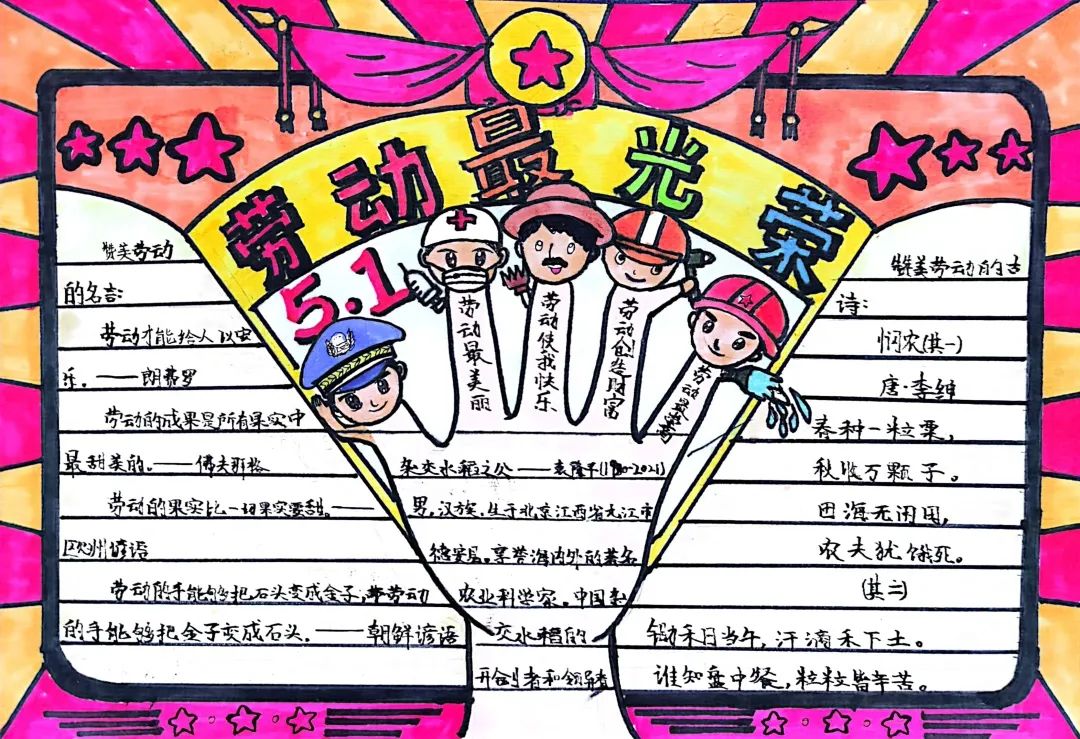 劳动最光荣
5.1
赞美劳动
的名言:
劳动才能给人以安
乐。——朗费罗
劳动的成果是所有果实中
最甜美的。——佛夫那格
劳动的果实比一切果实要甜。——
欧州谚语
劳动的手能够把石头变成金子,
的手能够把金子变成石头。——朝鲜谚语
劳动最美丽
劳动使我快乐
劳动创造财富
劳动最
杂交水稻之父——袁隆平(1930-2021)
男,汉族,生于北京江西省九江市
德安县。享誉海内外的著名
农业科学家。中国杂
交水稻的
开创者和领导者
赞美劳动的古
诗:
悯农(其一)
唐·李绅
春种一粒粟,
秋收万颗子。
四海无闲田,
农夫犹饿死。
(其二)
锄禾日当午,汗滴禾下土。
谁知盘中餐,粒粒皆辛苦。